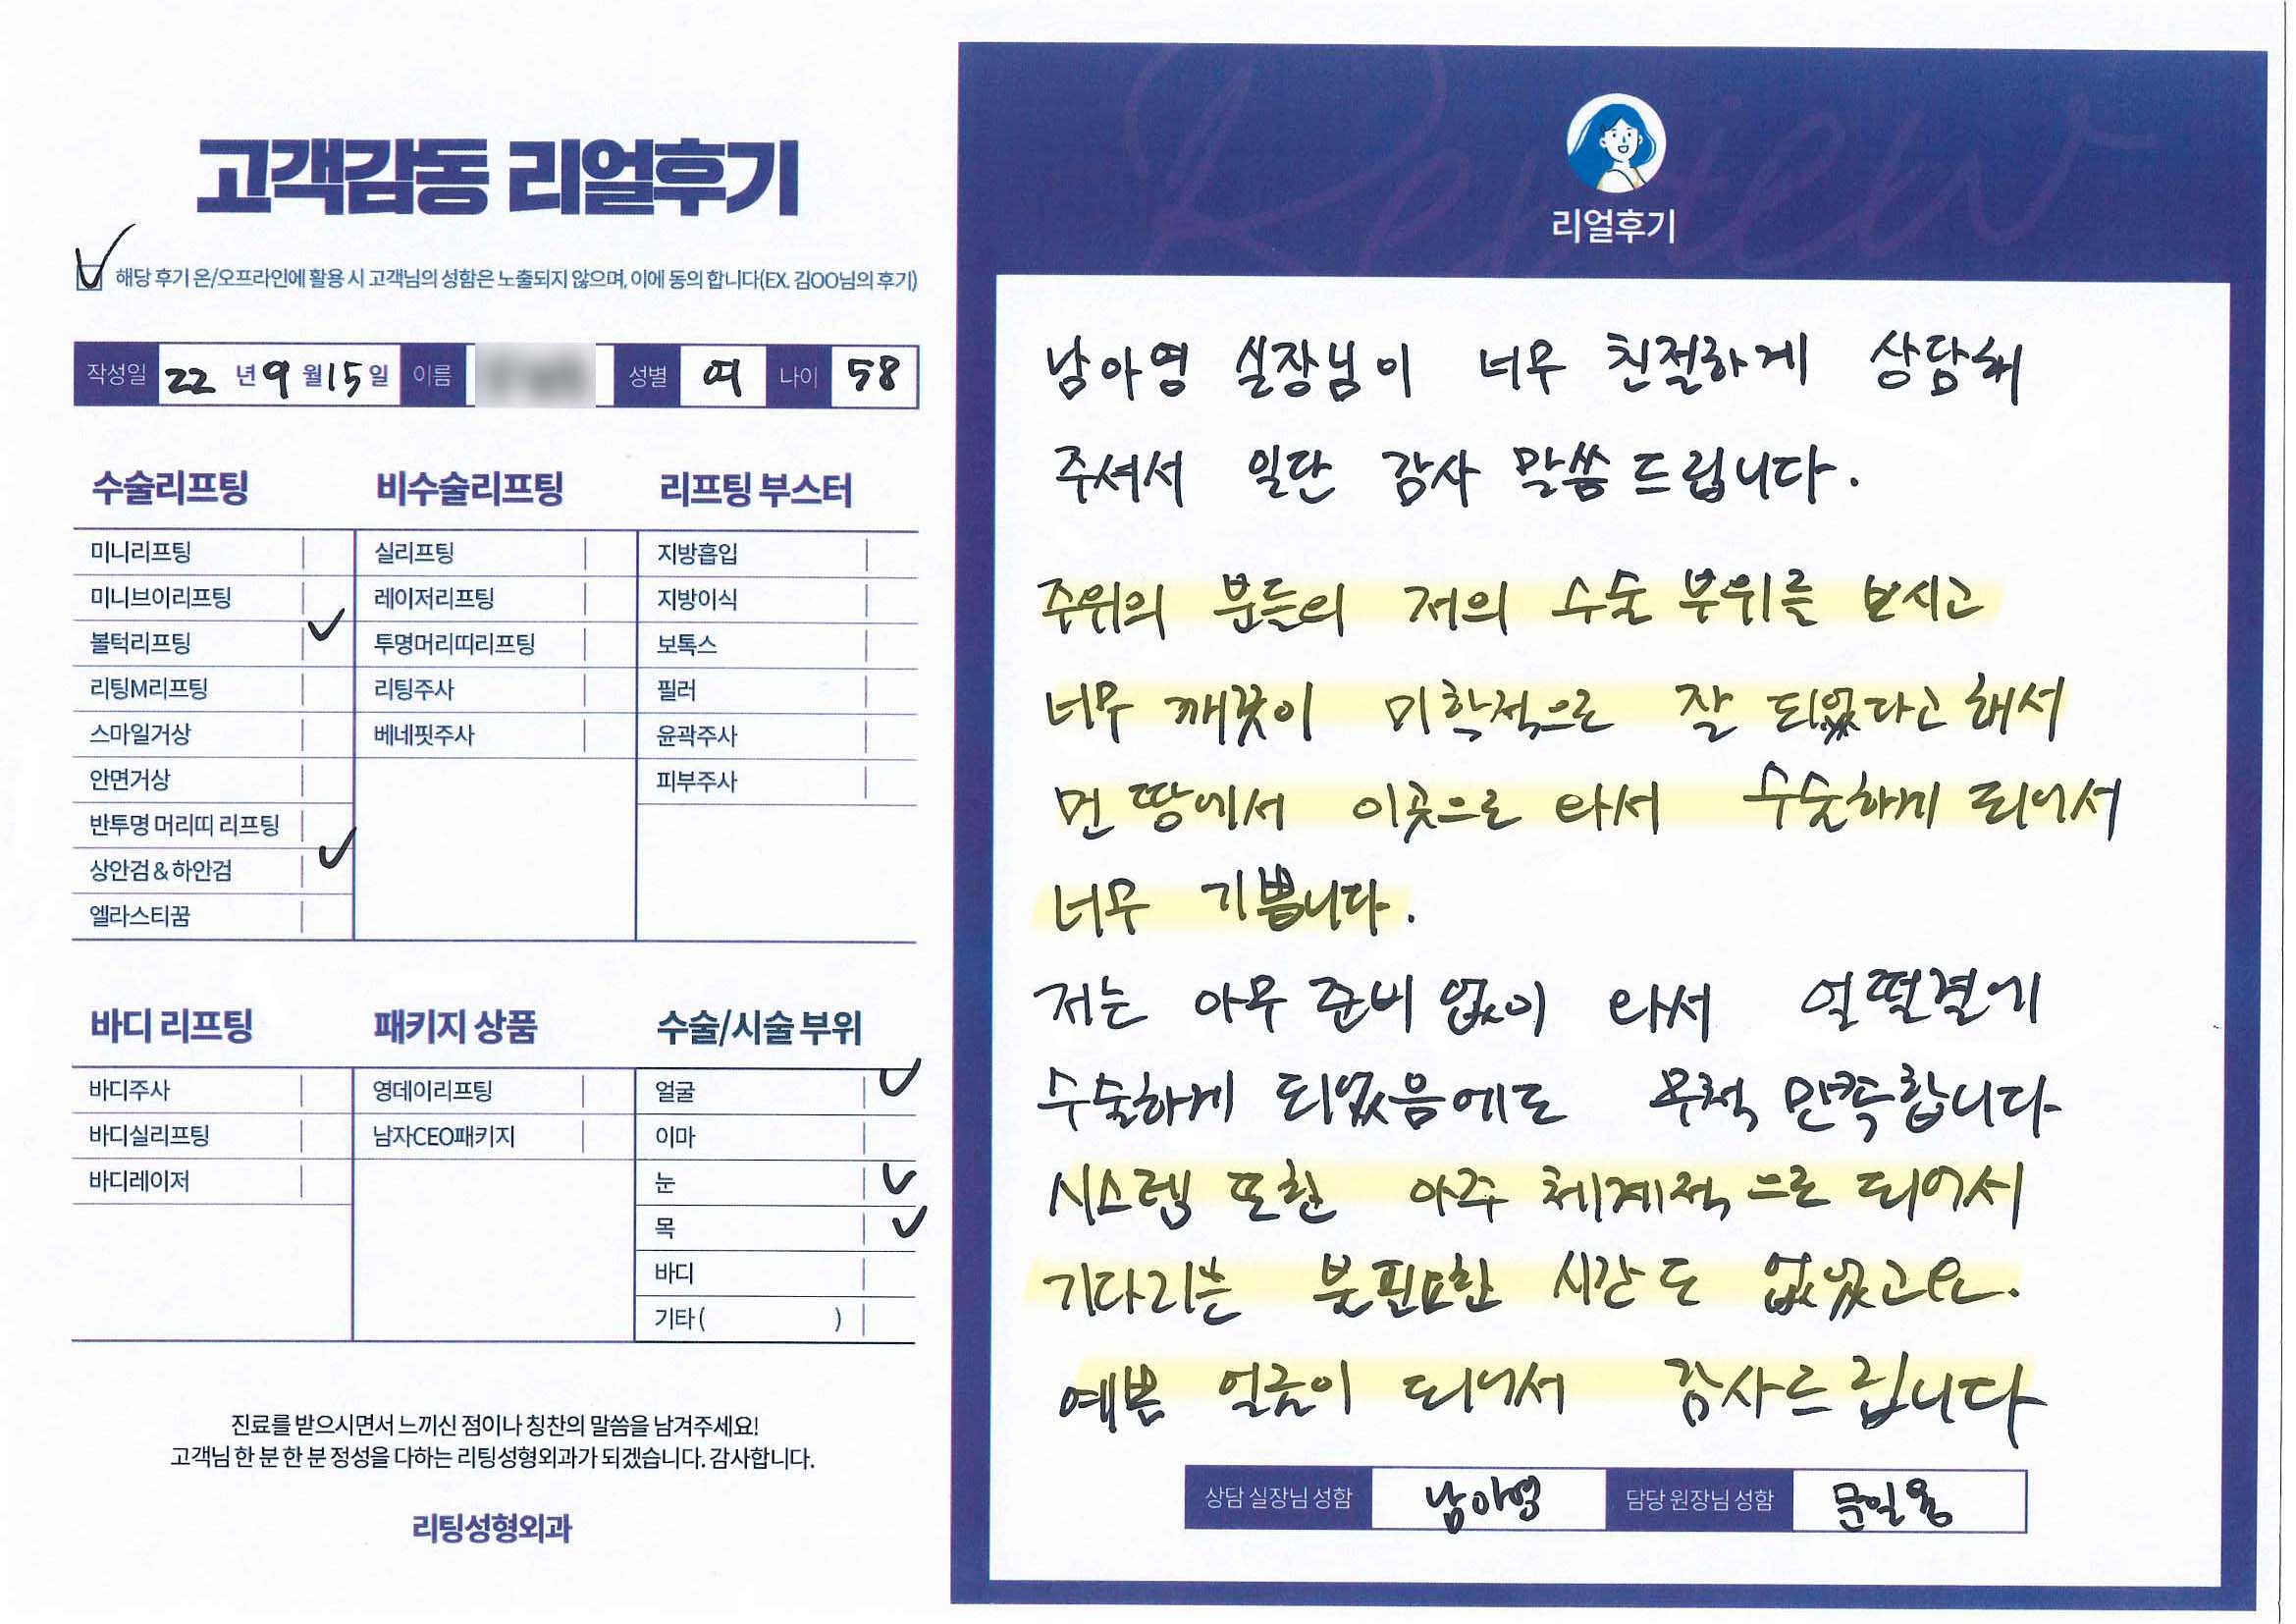 고객감동 리얼후기
해당 후기 온/오프라인에 활용 시 고객님의 성함은 노출되지 않으며, 이에 동의 합니다(EX. 김OO님의 후기)
작성일 22 년 9 월 15 일 이름 성별 여 나이 58
수술리프팅
미니리프팅
미니브이리프팅
볼턱리프팅
리팅M리프팅
스마일거상
안면거상
반투명 머리띠 리프팅
상안검 & 하안검
엘라스티꿈
비수술리프팅
실리프팅
레이저리프팅
투명머리띠리프팅
리팅주사
베네핏주사
리프팅 부스터
지방흡입
지방이식
보톡스
필러
윤곽주사
피부주사
바디 리프팅
바디주사
바디실리프팅
바디레이저
패키지 상품
영데이리프팅
남자CEO패키지
수술/시술 부위
얼굴
이마
눈
목
바디
기타 ( )
진료를 받으시면서 느끼신 점이나 칭찬의 말씀을 남겨주세요!
고객님 한 분 한 분 정성을 다하는 리팅성형외과가 되겠습니다. 감사합니다.
리팅성형외과
Review
리얼후기
남아영 실장님이 너무 친절하게 상담해
주셔서 일단 감사 말씀 드립니다.
주위의 분들의 저의 수술 부위를 보시고
너무 깨끗이 미학적으로 잘 되었다고 해서
먼 땅에서 이곳으로 와서 수술하게 되어서
너무 기쁩니다.
저는 아무 준비 없이 와서 얼떨결에
수술하게 되었음에도 무척 만족합니다
시스템 또한 아주 체계적으로 되어서
기다리는 불필요한 시간도 없었고요.
예쁜 얼굴이 되어서 감사드립니다
상담 실장님 성함 남아영 담당 원장님 성함 문일웅